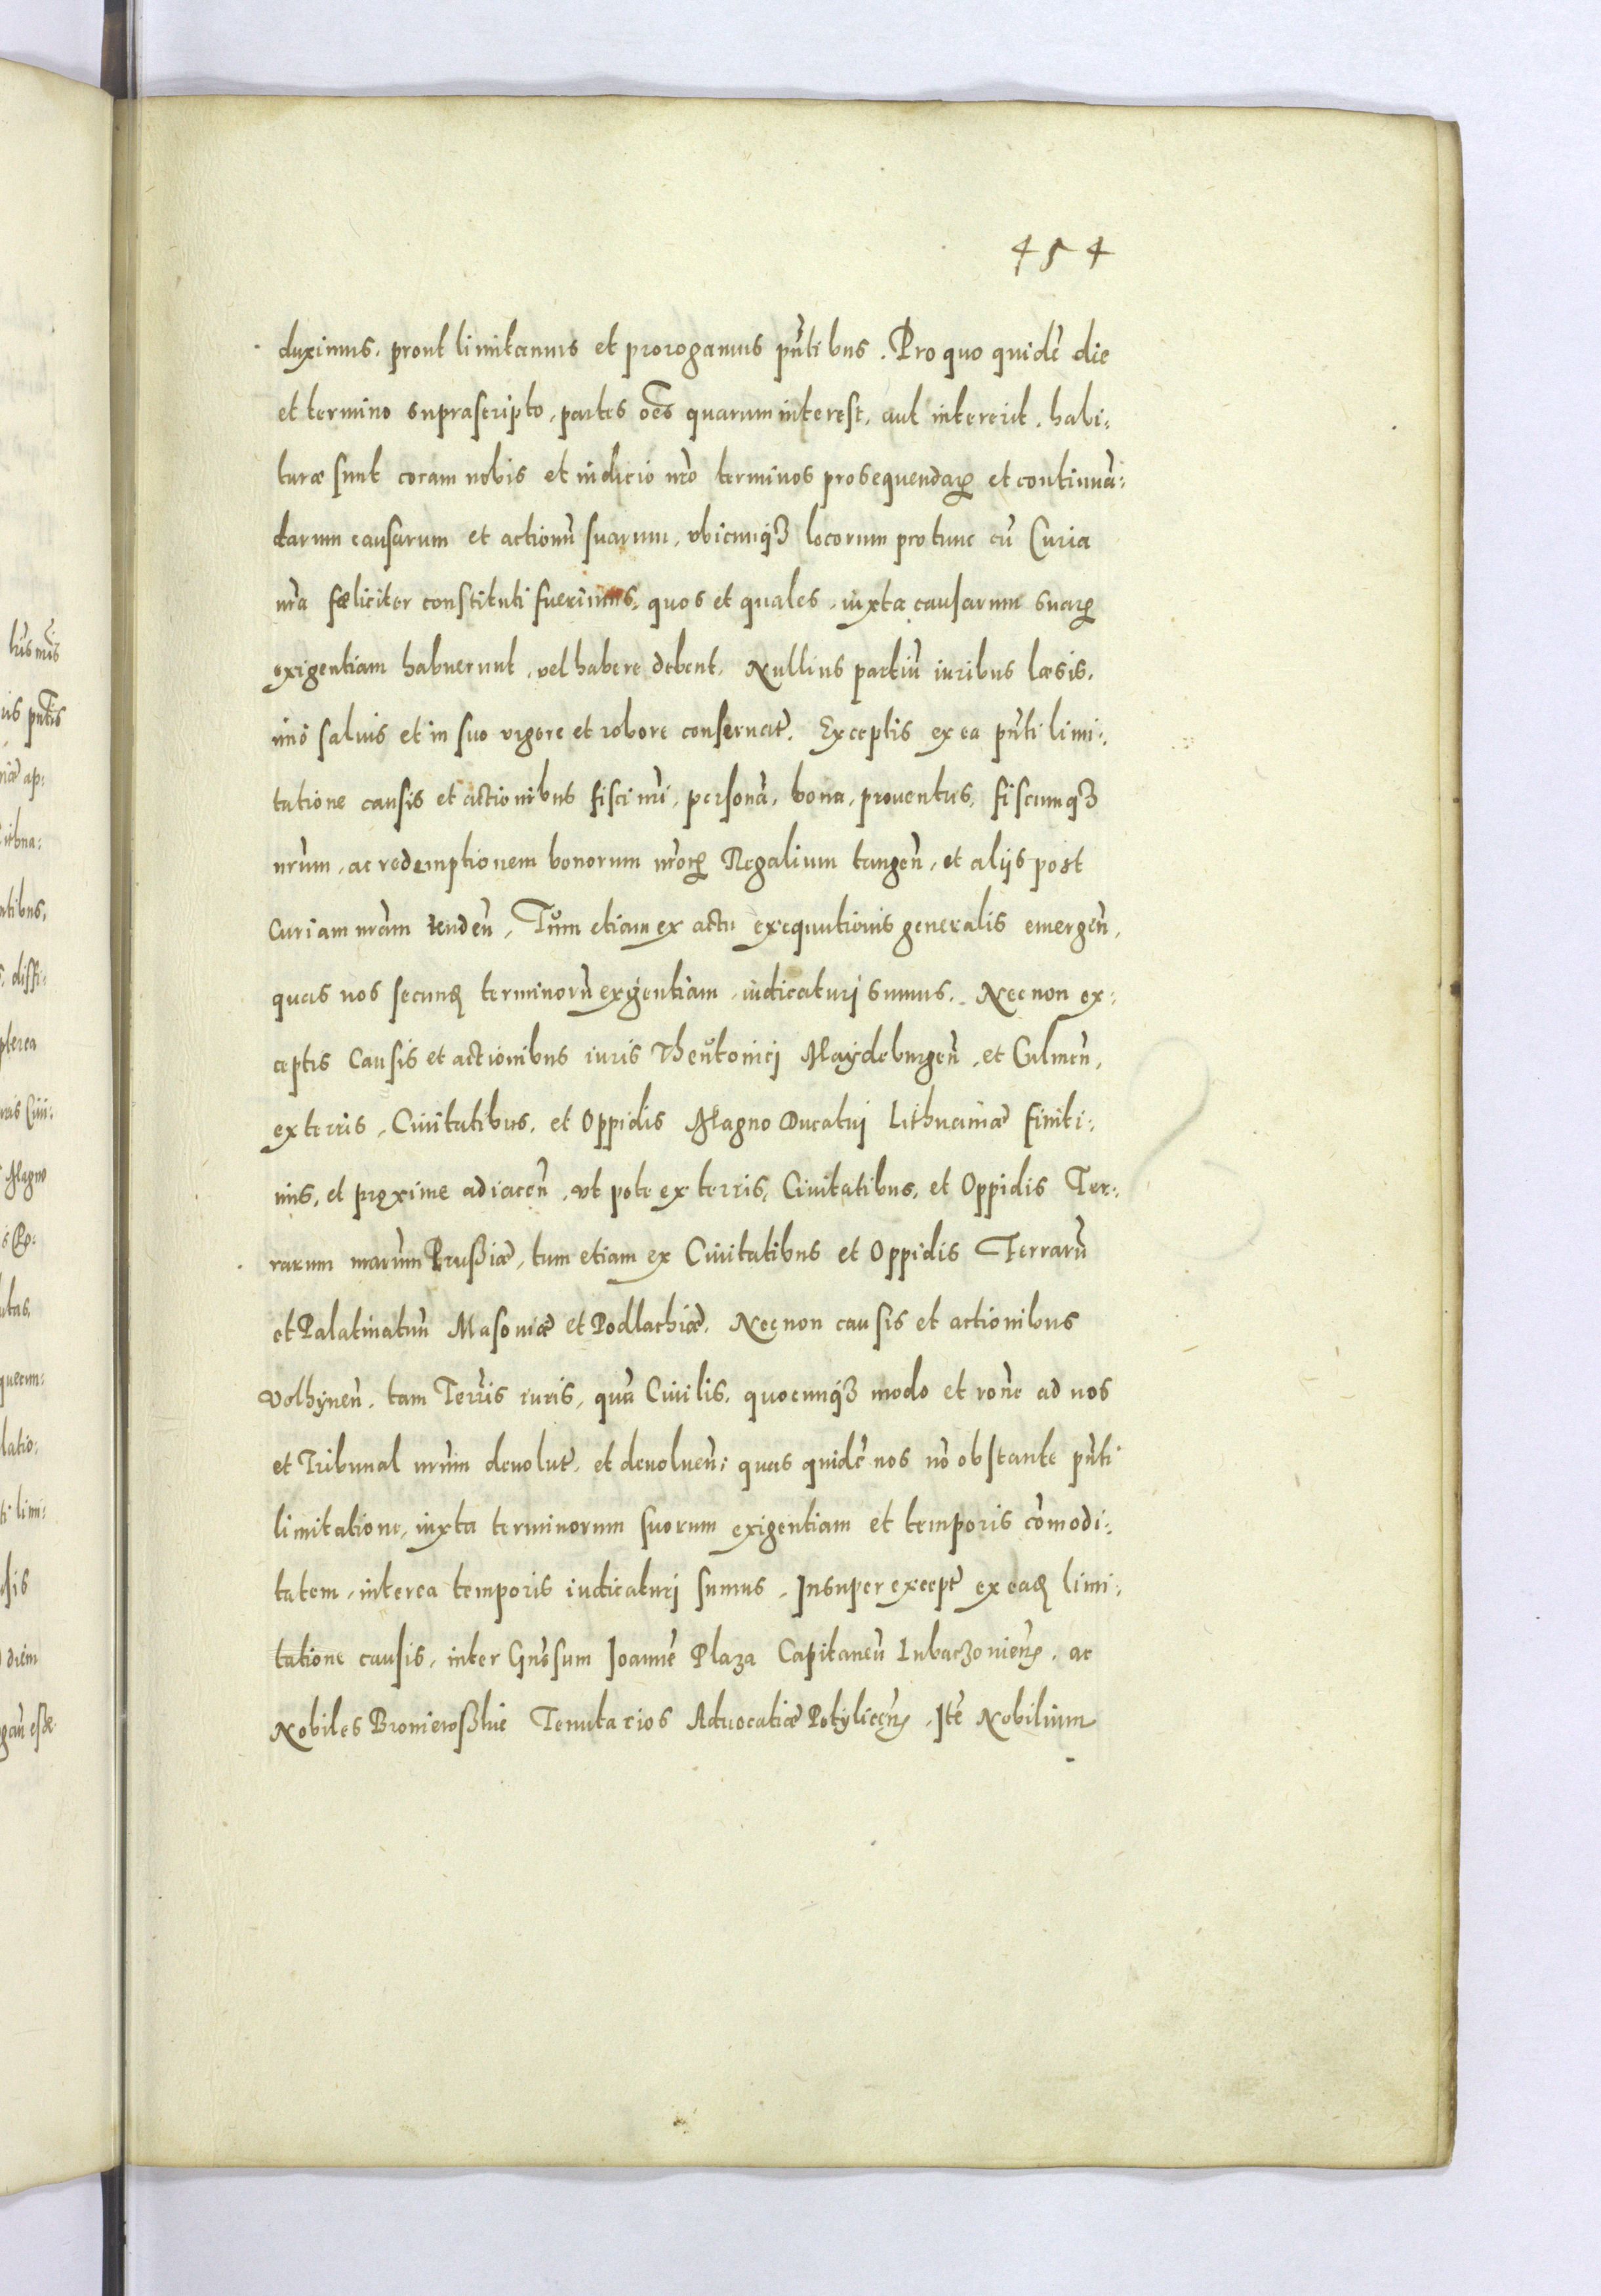 454
duximus, prout limitamus et prorogamus pn̄tibus. Pro quo quidē die
et termino suprascripto, partes oēs quarum interest, aut intererit, habi:
turæ sunt coram nobis et iudicio nrō terminos prosequendaꝝ et continuā:
darum causarum et actionū suarum, vbicunqꝫ locorum pro tunc cū Curia
nrā fæliciter constituti fuerimus, quos et quales, iuxta causarum suaꝝ
exigentiam habuerunt, vel habere debent. Nullius partiū iuribus læsis,
imò saluis et in suo vigore et robore conseruat̄. Exceptis ex ea pn̄ti limi:
tatione causis et actionibus fisci nrī, personā, bona, prouentus, fiscumqꝫ
nrūm, ac redemptionem bonorum nrōꝝ Regalium tangen̄, et alijs post
Curiam nrām venden̄, Tùm etiam ex actu exequutionis generalis emergen̄,
quas nos secunꝫ terminorū exigentiam iudicaturi sumus. Nec non ex:
ceptis Causis et actionibus iuris Theutonici Maydeburgen̄, et Culmen̄,
ex terris, Ciuitatibus, et Oppidis Magno Ducatuj Lithuaniæ finiti:
mis, et proxime adiacen̄, vt pote ex terris, Ciuitatibus, et Oppidis Ter:
rarum nrārum Prußiæ, tum etiam ex Ciuitatibus et Oppidis Terrarū
et Palatinatuū Masouiæ et Podlachiæ. Nec non causis et actionibus
Volhynen̄, tam Terrīs iuris, quā Ciuilis, quocunqꝫ modo et ronē ad nos
et Tribunal nrūm deuolut̄, et deuoluen̄: quas quidē nos nō obstante pn̄ti
limitatione, iuxta terminorum suorum exigentiam et temporis cōmodi:
tatem, interea temporis iudicaturj sumus. Insuper except̄ ex eaꝫ limi:
tatione causis, inter Gnōsum Joannē Plaza Capitaneū Lubaczouienꝫ, ac
Nobiles Bronieroßkie Tenutarios Aduocatiæ Potyliceņꝫ, Itē Nobilium